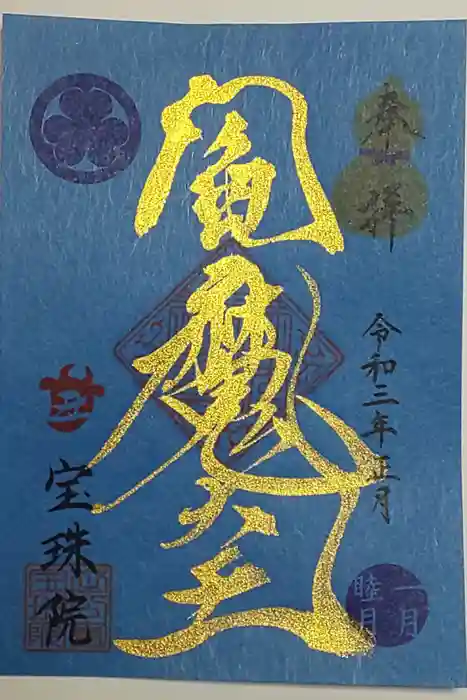 奉拝
令和三年正月
閻魔大王
宝珠院
一月
睦月